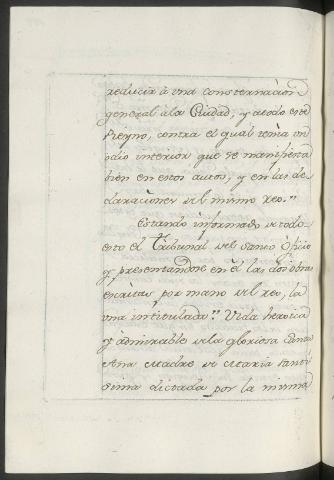 reducir à una consternacion
general a la Ciudad, y a todo este
Reyno, contra el qual tenia un
odio interior que se manifiesta
bien en estos autos, y en las de-
claraciones del mismo reo."
Estando informado de todo
esto el Tribunal del Santo Oficio
y presentandose en èl las dos obras
escritas por mano del reo, la
una intitulada: " Vida heroica
y admirable de la gloriosa Santa
Ana Madre de Maria Santi-
sima dictada por la misma